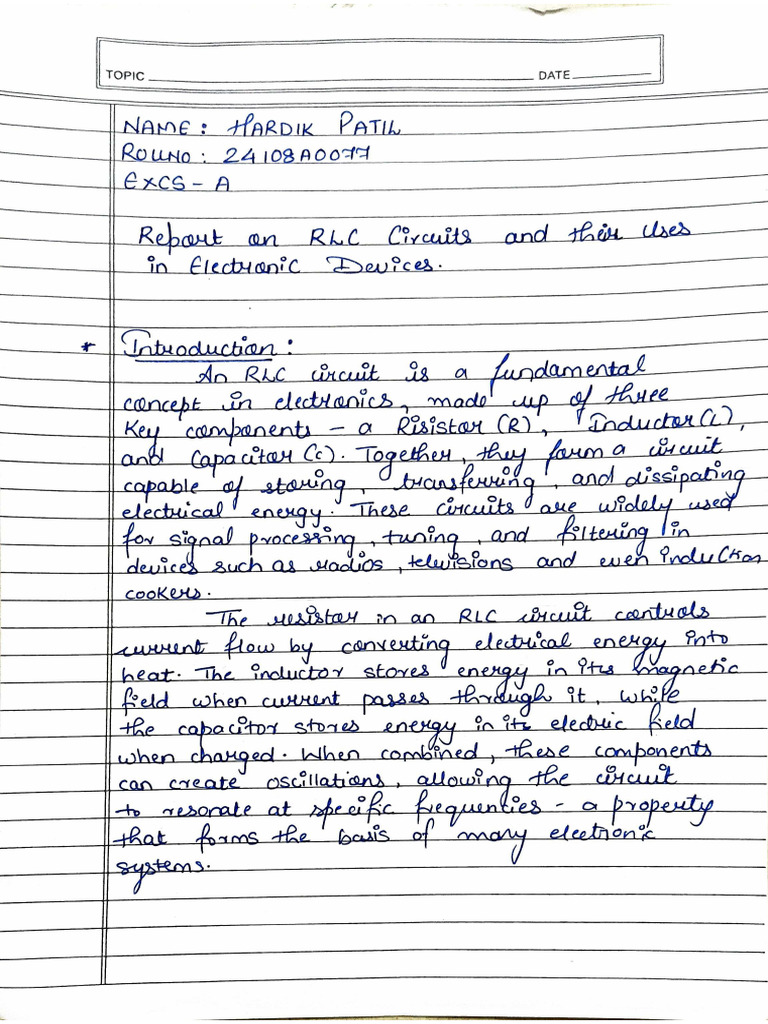 TOPIC DATE
NAME: HARDIK PATIL
ROLLNO: 24108A0077
EXCS-A
Report on RLC Circuits and their Uses
in Electronic Devices.
* Introduction:
An RLC circuit is a fundamental
concept in electronics, made up of three
key components - a Risistor (R), Inductor (L),
and Capacitor (C). Together, they form a circuit
capable of storing, transferring, and dissipating
electrical energy. These circuits are widely used
for signal processing, tuning, and filtering in
devices such as radios, televisions and even induction
cookers.
The resistor in an RLC circuit controls
current flow by converting electrical energy into
heat. The inductor stores energy in its magnetic
field when current passes through it, while
the capacitor stores energy in its electric field
when charged. When combined, these components
can create oscillations, allowing the circuit
to resonate at specific frequenties - a property
that forms the basis of many electronic
systems.